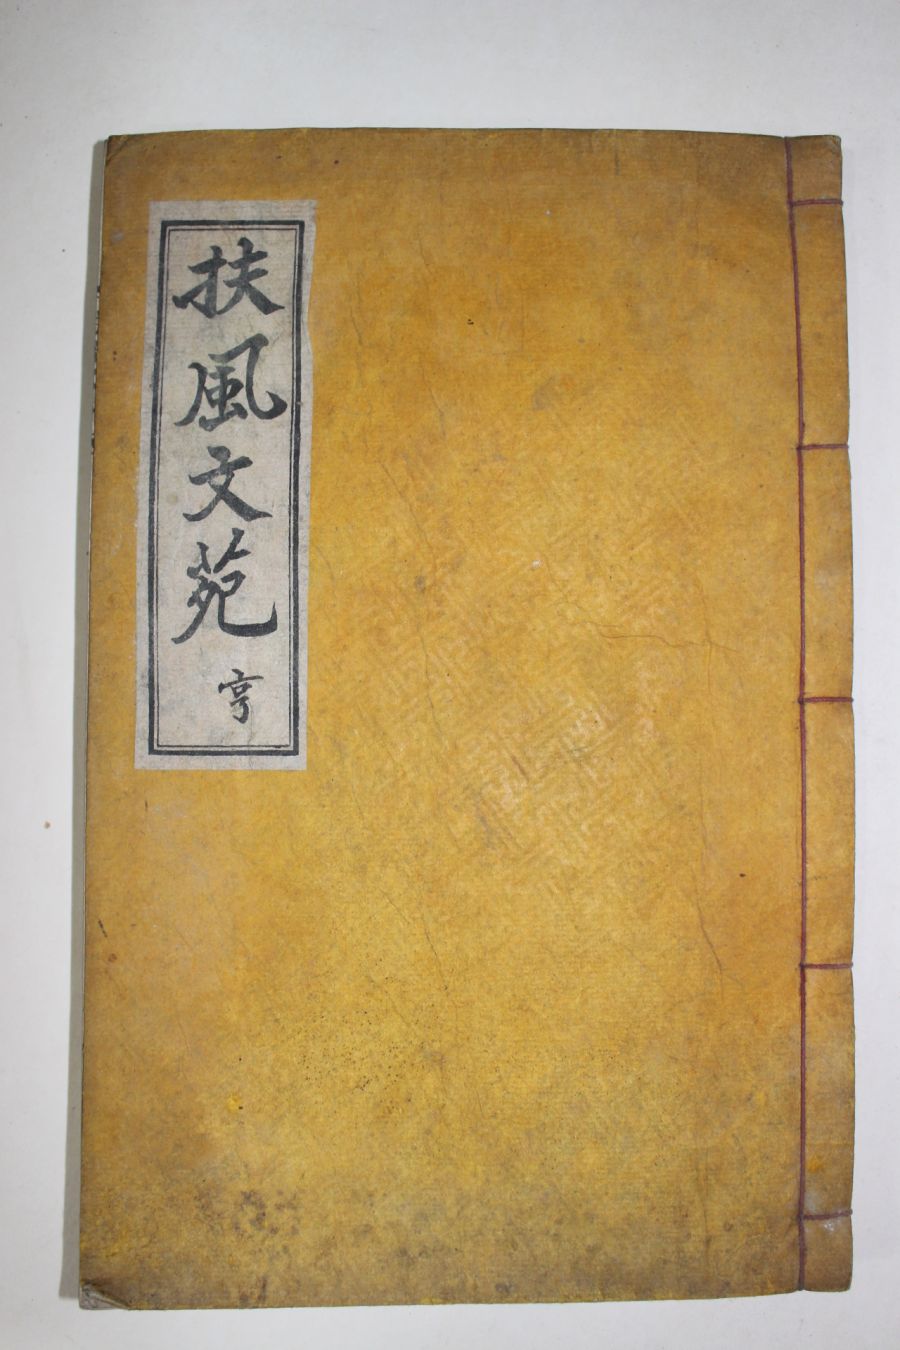 扶風文苑 亨